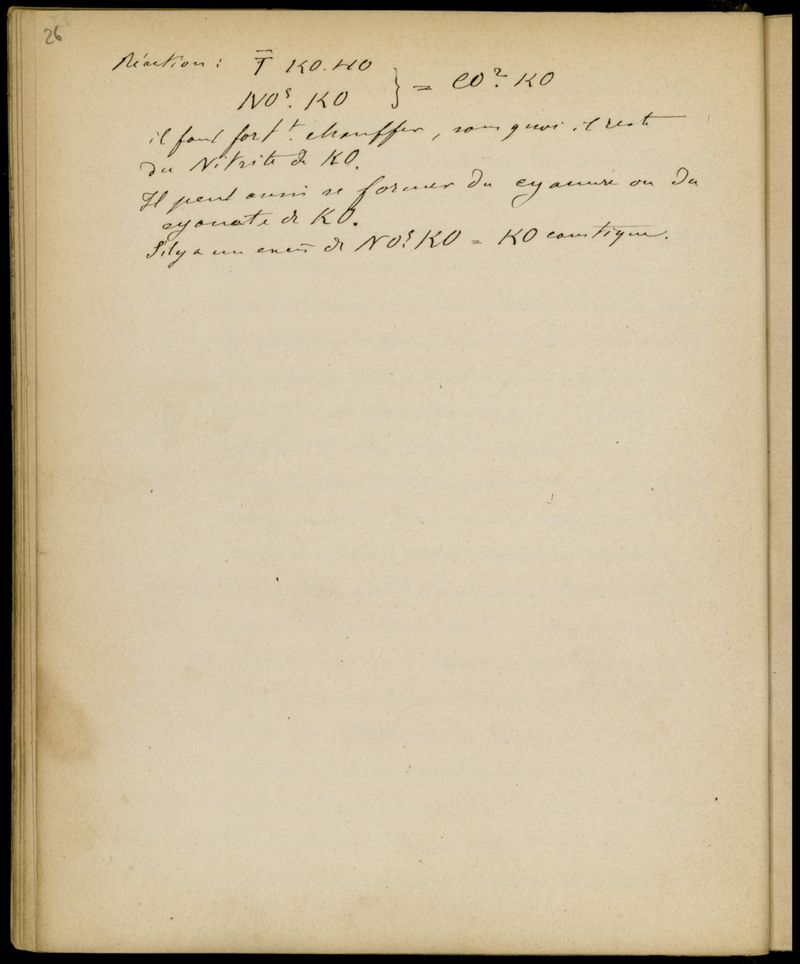 26
Réaction : T̅ KO.HO } = CO². KO
NO⁵. KO
il faut fortt. chauffer, sans quoi il reste
du Nitrite de KO.
Il peut aussi se former du cyanure ou du
cyanate de KO.
S'il y a un excès de NO⁵. KO = KO caustique.